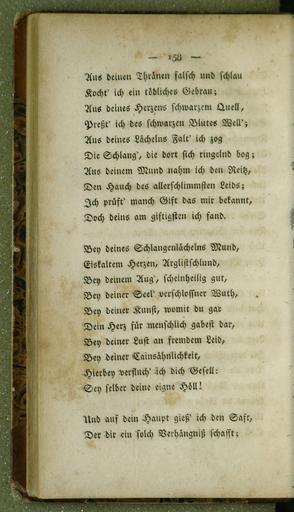 — 158 —
Aus deinen Thränen falsch und schlau
Kocht' ich ein tödliches Gebrau;
Aus deines Herzens schwarzem Quell,
Preßt' ich des schwarzen Blutes Well';
Aus deines Lächelns Falt' ich zog
Die Schlang', die dort sich ringelnd bog;
Aus deinem Mund nahm ich den Reitz,
Den Hauch des allerschlimmsten Leids;
Ich prüft' manch Gift das mir bekannt,
Doch deins am giftigsten ich fand.
Bey deines Schlangenlächelns Mund,
Eiskaltem Herzen, Arglistschlund,
Bey deinem Aug', scheinheilig gut,
Bey deiner Seel' verschloßner Wuth,
Bey deiner Kunst, womit du gar
Dein Herz für menschlich gabest dar,
Bey deiner Lust an fremdem Leid,
Bey deiner Cainsähnlichkeit,
Hierbey verfluch' ich dich Gesell:
Sey selber deine eigne Höll!
Und auf dein Haupt gieß' ich den Saft,
Der dir ein solch Verhängniß schafft;